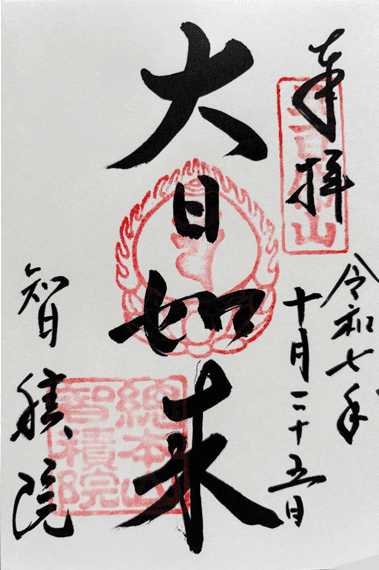 奉拝
令和七年
十月二十五日
大日如来
智積院
總本山
智積院